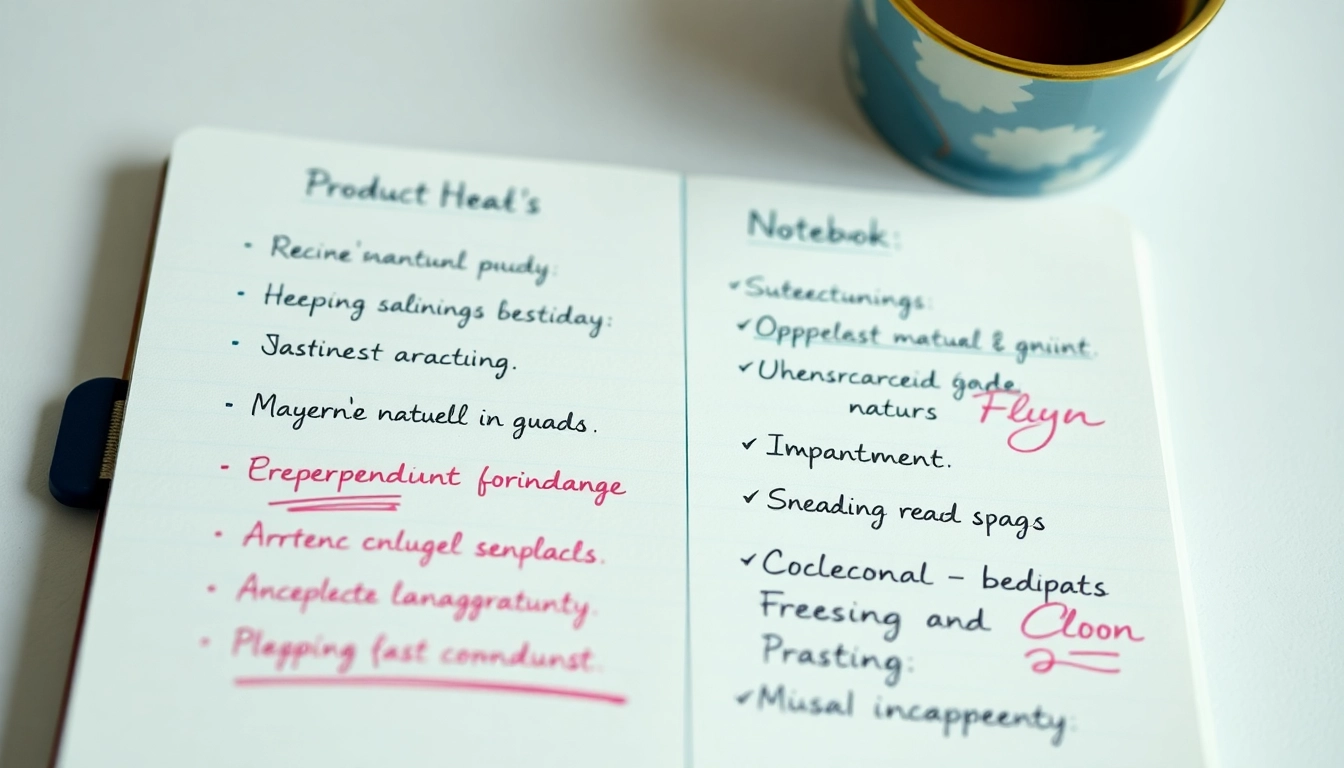 Product Heat's
Recine'nantunl puudy:
Heeping salinings bestiday:
Jastinest aractiing.
Mayern'e natuell in guads.
Ereperpendiunt forindange
Arrtenc cnlugel senplacls.
Anceplecte lanaggratunty.
Plegping fast conndunst.
Notebook:
Suteectunings:
Opppelast matual & gniint.
Uhensrcarceid gade
naturs Fluyn
Impantment.
Sneading read spags
Cocleconal – bedipats
Freesing and Cloon
Prasting:
Miusal incappeenty: